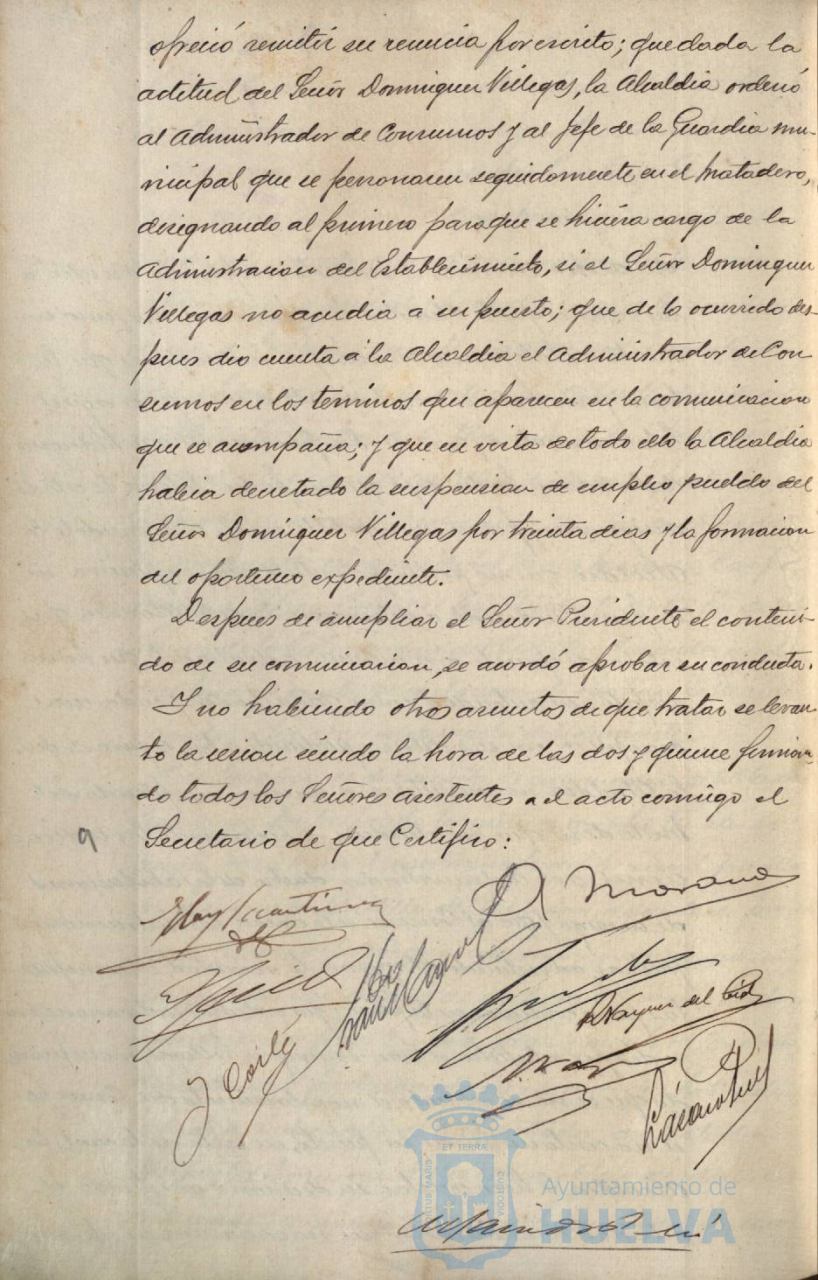 ofreció remitir su renuncia por escrito; que dada la
actitud del Señor Dominguez Villegas, la Alcaldia ordenó
al Administrador de Consumos y al Jefe de la Guardia mu-
nicipal que se personaran seguidamente en el Matadero,
designando al primero para que se hiciera cargo de la
Administracion del Establecimiento, si el Señor Dominguez
Villegas no acudia á su puesto; que de lo ocurrido des-
pues dio cuenta á la Alcaldia el Administrador de Con
sumos en los terminos que aparecen en la comunicacion
que se acompaña; y que en vista de todo ello la Alcaldia
habia decretado la suspension de empleo y sueldo del
Señor Dominguez Villegas por treinta dias y la formacion
del oportuno expediente.
Despues de ampliar el Señor Presidente el conteni-
do de su comunicacion, se acordó aprobar su conducta.
Y no habiendo otros asuntos de que tratar se levan
tó la sesion siendo la hora de las dos y quince firman-
do todos los Señores asistentes a el acto comigo el
Secretario de que Certifico:
9
Morano
Vazquez del Cid
J Cortés
Lázaro
ET TERRA
CUSTODIA
Ayuntamiento de
HUELVA